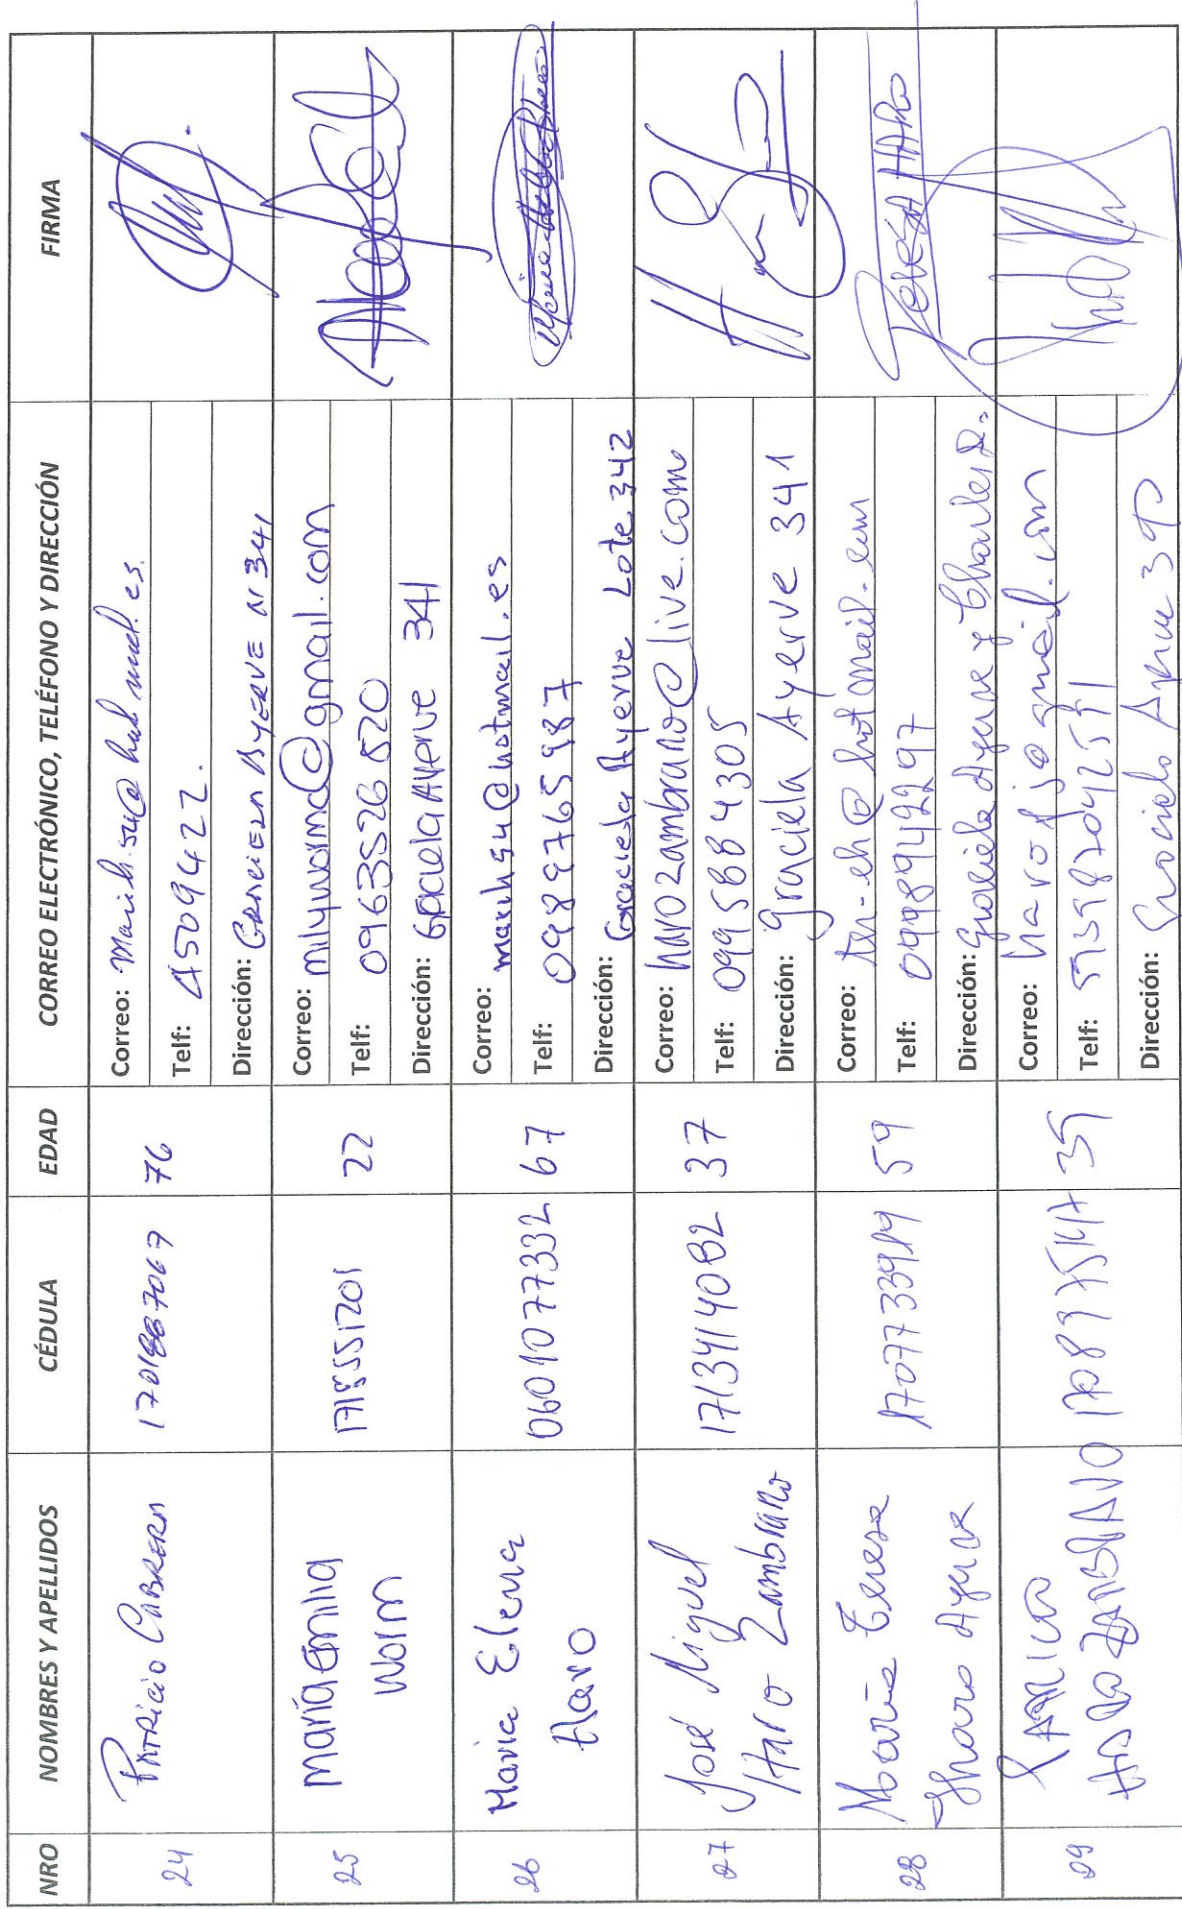 NRO NOMBRES Y APELLIDOS CÉDULA EDAD CORREO ELECTRÓNICO, TELÉFONO Y DIRECCIÓN FIRMA
24 Patricio Cabrera 1701887067 76
Correo:
Telf: 4509422.
Dirección: Graciela Ayerve N 341
25 María Emilia
Worm
1718551201 22
Correo: milyworm@gmail.com
Telf: 0963526520
Dirección: Graciela Ayerve 341
26 Maria Elena
Haro
0601077332 67
Correo: marih54@hotmail.es
Telf: 0988765987
Dirección: Graciela Ayerve Lote 342
27 José Miguel
Haro Zambrano
1713414082 37
Correo: harozambrano@live.com
Telf: 0995884305
Dirección: Graciela Ayerve 341
28 Maria Teresa
Haro Ayerve
1707733919 59
Correo:
Telf: 0998942297
Dirección: Graciela Ayerve y
TERESA HARO
29
HARO ZAMBRANO
35
Correo:
Telf:
Dirección: